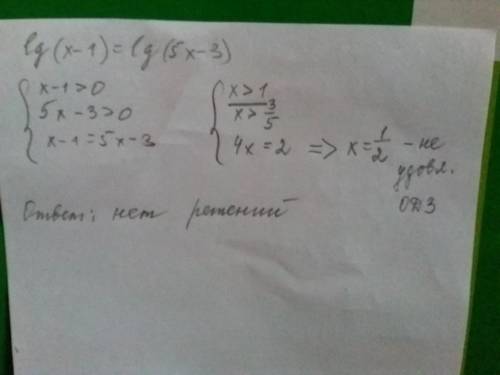 lg(x-1) = lg(5x-3)
{ x-1>0 { x>1
5x-3>0 x> 3/5
x-1=5x-3 4x=2 => x=1/2 - не
удовл.
ОДЗ
Ответ: нет решений